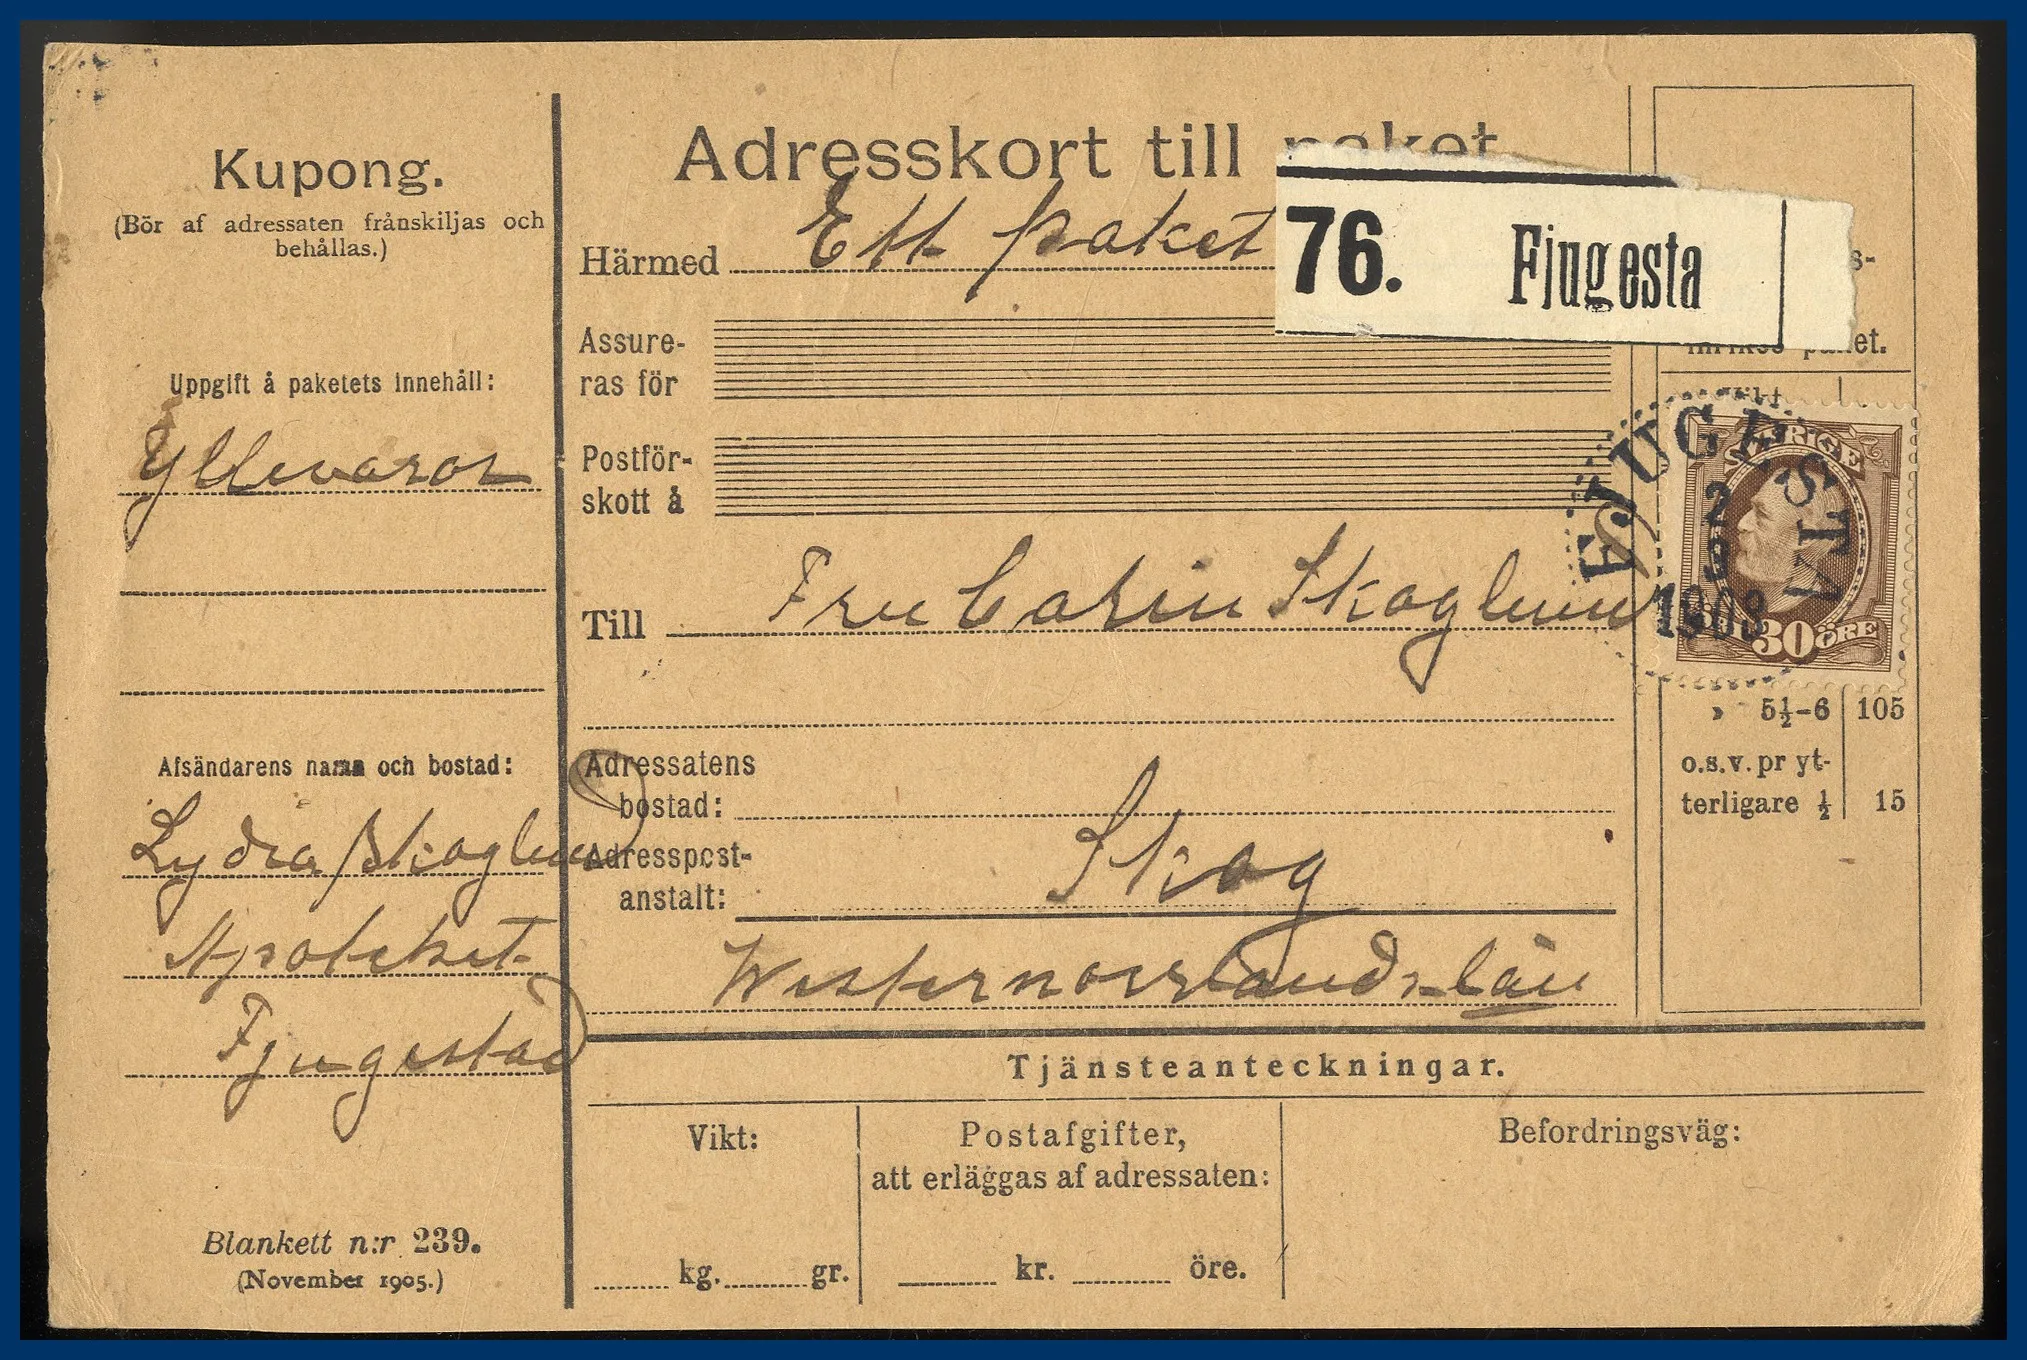 Kupong.
(Bör af adressaten frånskiljas och
behållas.)
Uppgift å paketets innehåll:
Yllevaror
Afsändarens namn och bostad:
Lydia Skoglund
Apoteket
Fjugesta
Blankett n:r 239.
(November 1905.)
Adresskort till paket
Härmed Ett paket
76. Fjugesta
Assure-
ras för
Postför-
skott å
Till Fru Carin Skoglund
Adressatens
bostad:
Adresspost-
anstalt: Skog
Westernorrlands län
s-
inrikes paket.
FJUGESTA
2
1908
SVERIGE
30 ÖRE
» 5½–6 105
o.s.v. pr yt-
terligare ½ 15
Tjänsteanteckningar.
Vikt:
kg. gr.
Postafgifter,
att erläggas af adressaten:
kr. öre.
Befordringsväg: